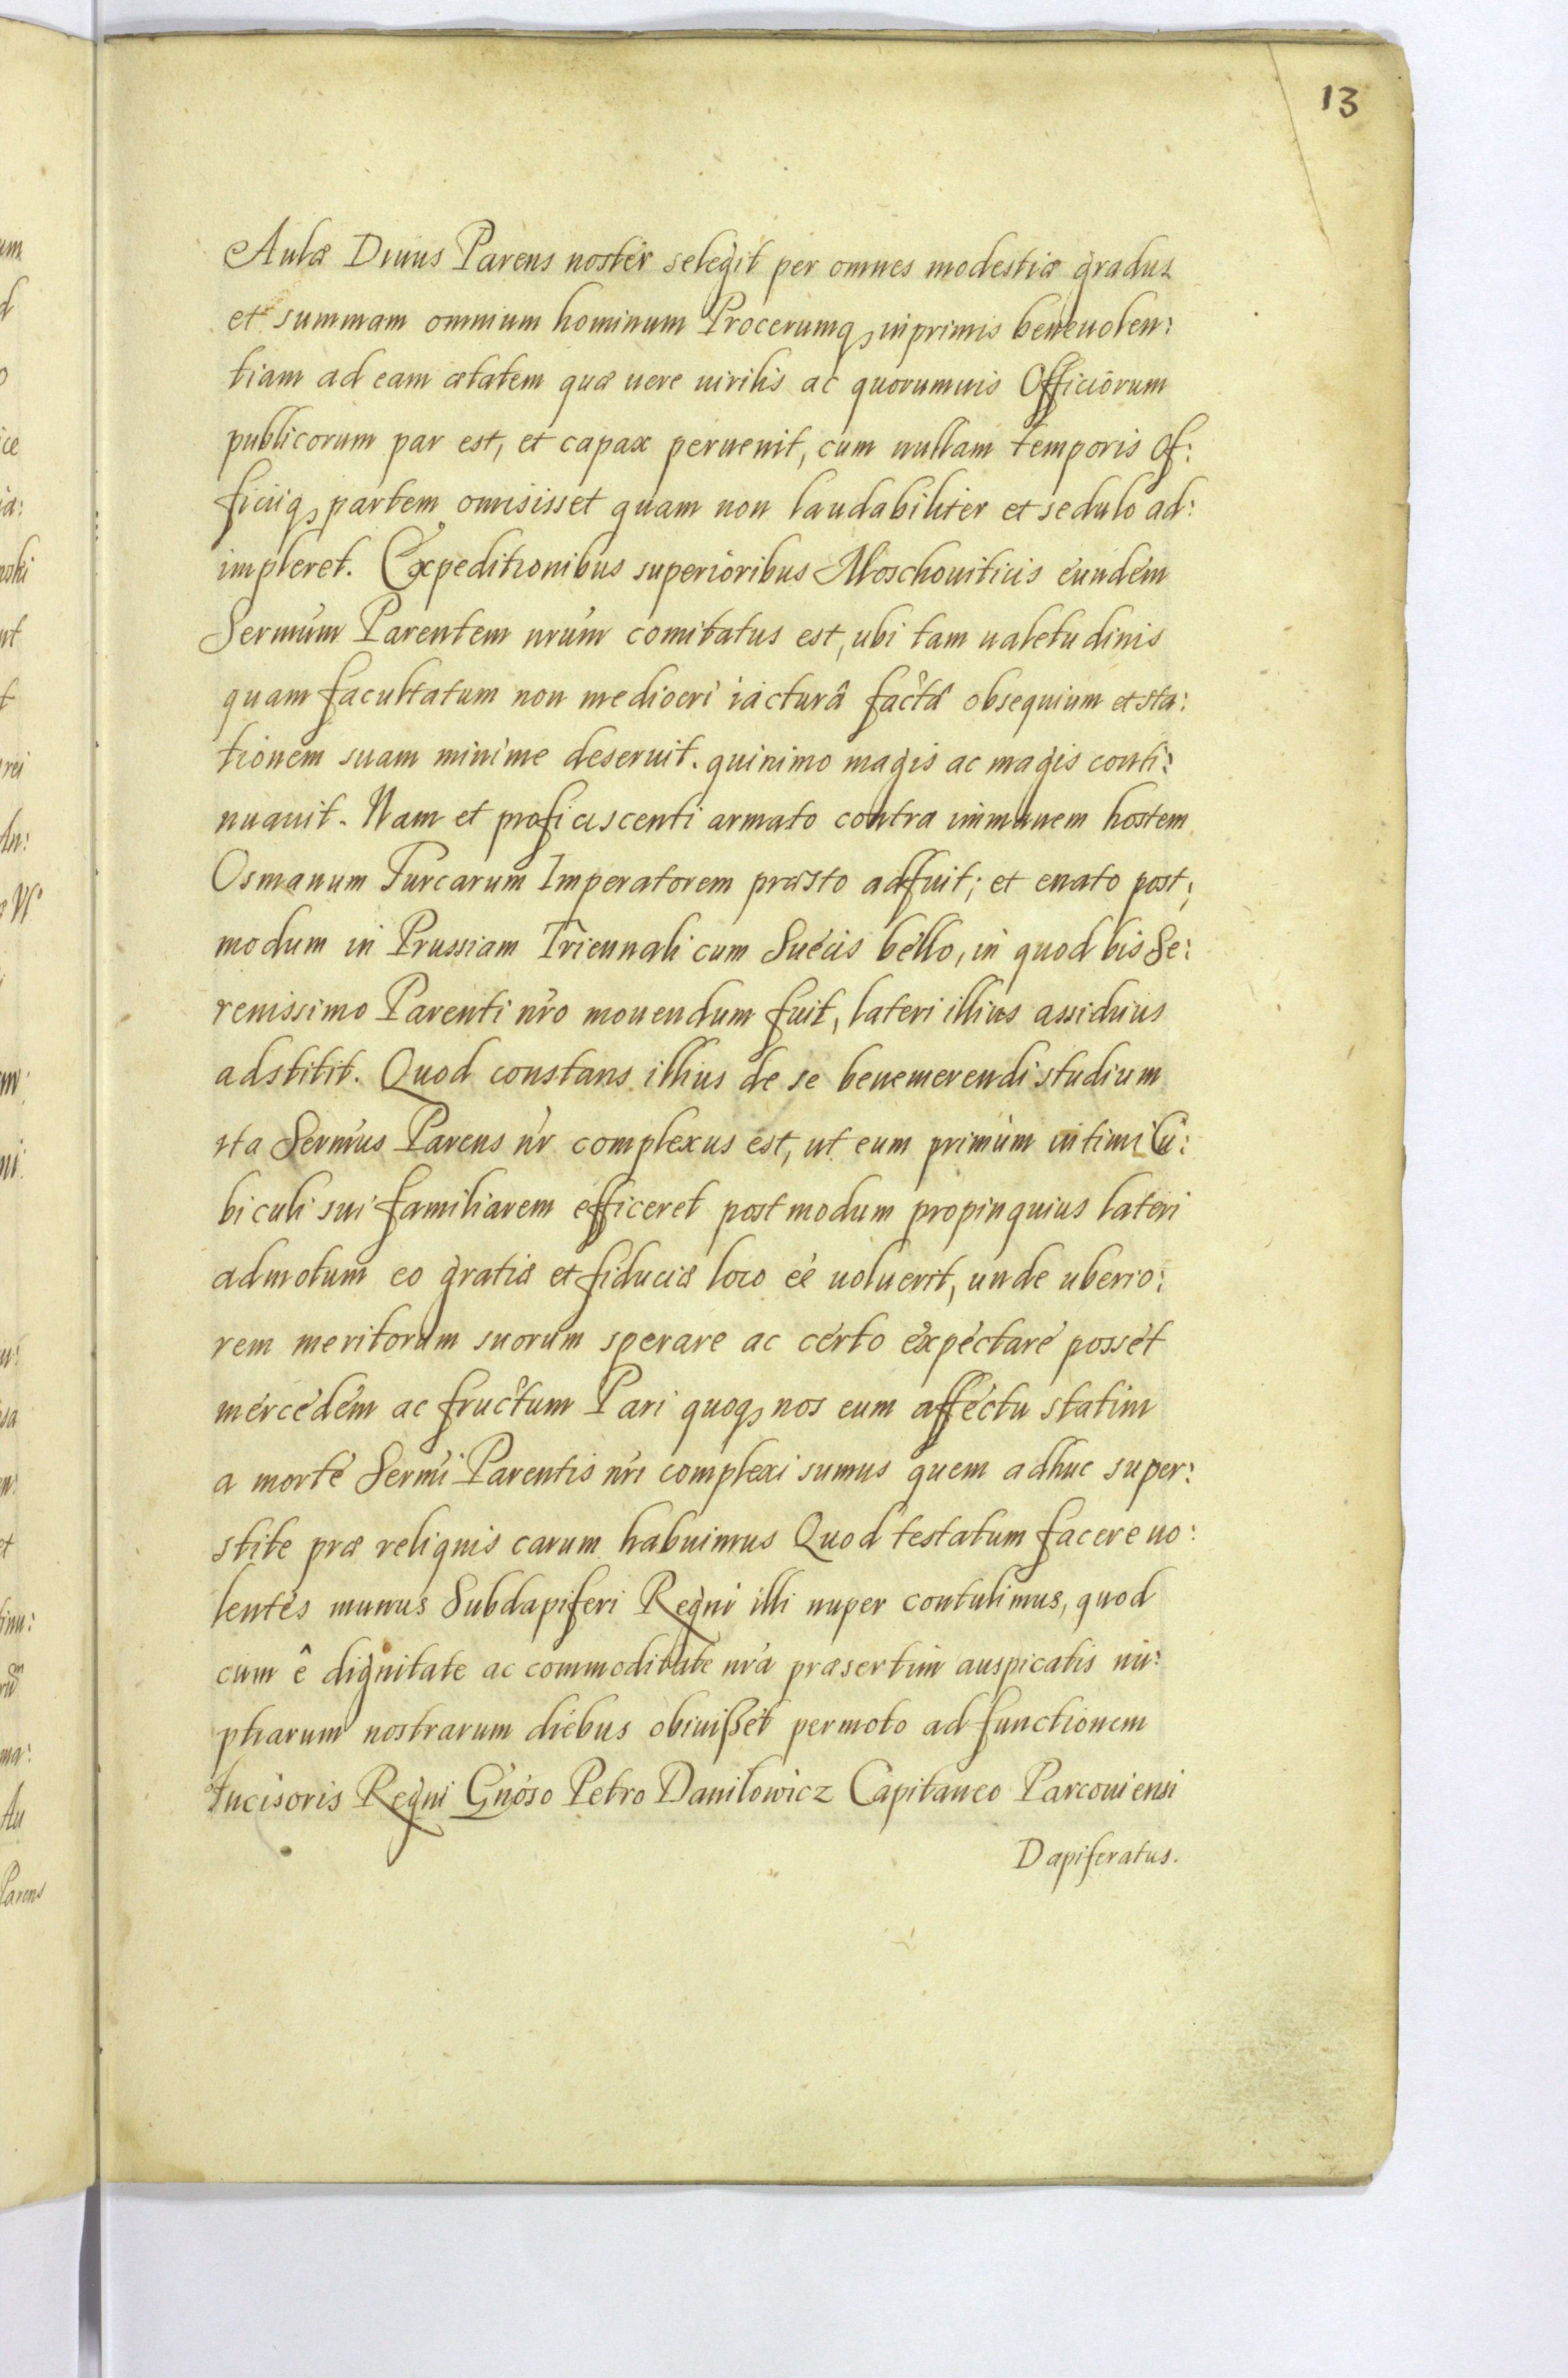 13
Aulæ Diuus Parens noster selegit per omnes modestiæ gradus
et summam omnium hominum Procerumq, inprimis beneuolen:
tiam ad eam ætatem quæ uere uirilis ac quorumuis Officiorum
publicorum par est, et capax peruenit, cum nullam temporis Of:
ficiiq, partem omisisset quam non laudabiliter et sedulo ad:
impleret. Expeditionibus superioribus Moschouiticis eundem
Sermum Parentem nrum comitatus est, ubi tam ualetudinis
quam facultatum non mediocri iacturâ factâ obsequium et sta:
tionem suam minime deseruit. quinimo magis ac magis conti:
nuauit. Nam et proficiscenti armato contra immanem hostem
Osmanum Turcarum Imperatorem præsto adfuit; et enato post:
modum in Prussiam Triennali cum Suecis bello, in quod bis Se:
renissimo Parenti nro mouendum fuit, lateri illius assiduus
adstitit. Quod constans illius de se benemerendi studium
ita Sermus Parens nr complexus est, ut eum primum intimi Cu:
biculi sui familiarem efficeret postmodum propinquius lateri
admotum eo gratiæ et fiduciæ loco eé uoluerit, unde uberio:
rem meritorum suorum sperare ac certo expectare posset
mercedem ac fructum Pari quoq, nos eum affectu statim
a morte Sermi Parentis nri complexi sumus quem adhuc super:
stite præ reliquis carum habuimus Quod testatum facere uo:
lentes munus Subdapiferi Regni illi nuper contulimus, quod
cum ê dignitate ac commoditate nra præsertim auspicatis nu:
ptiarum nostrarum diebus obiuißet permoto ad functionem
Incisoris Regni Gnoso Petro Danilowicz Capitaneo Parcouiensi
Dapiferatus.